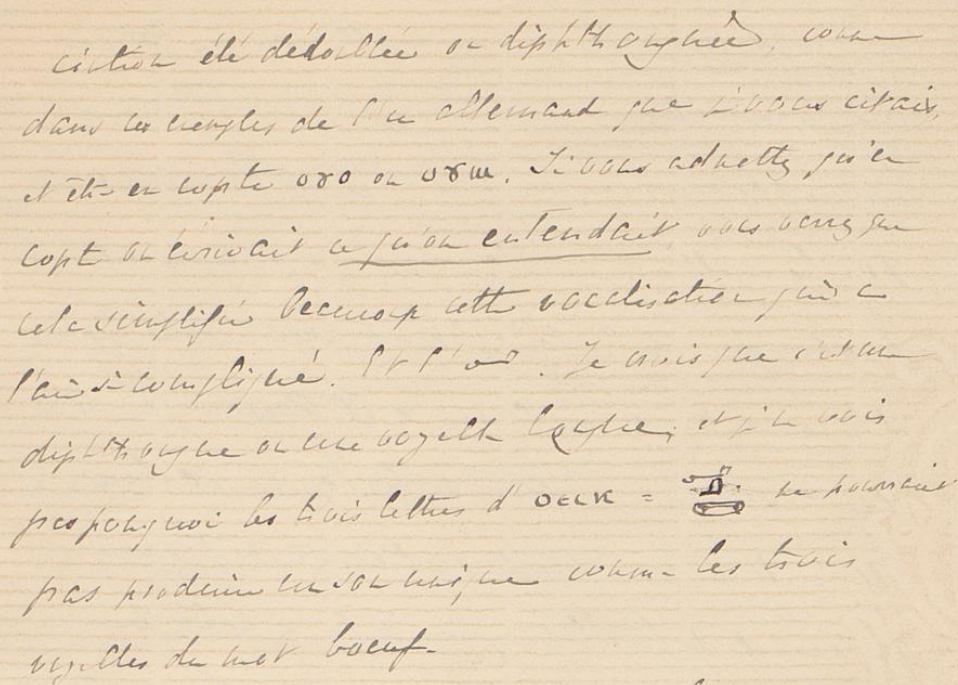 été dédoublée ou diphthonguée, comme
dans les exemples de l'u allemand que je vous citais,
et être en copte ⲟⲩⲟ ou ⲟⲩⲱ. Si vous admettez qu'en
copte on écrivait ce qu'on entendait, vous verrez que
cela simplifie beaucoup cette vocalisation qui a
l'air si compliqué. Je crois que c'est une
diphthongue ou une voyelle longue, et je ne vois
pas pourquoi les trois lettres d' ⲟⲉⲓⲕ = ne pourraient
pas produire un son unique comme les trois
voyelles du mot boeuf.